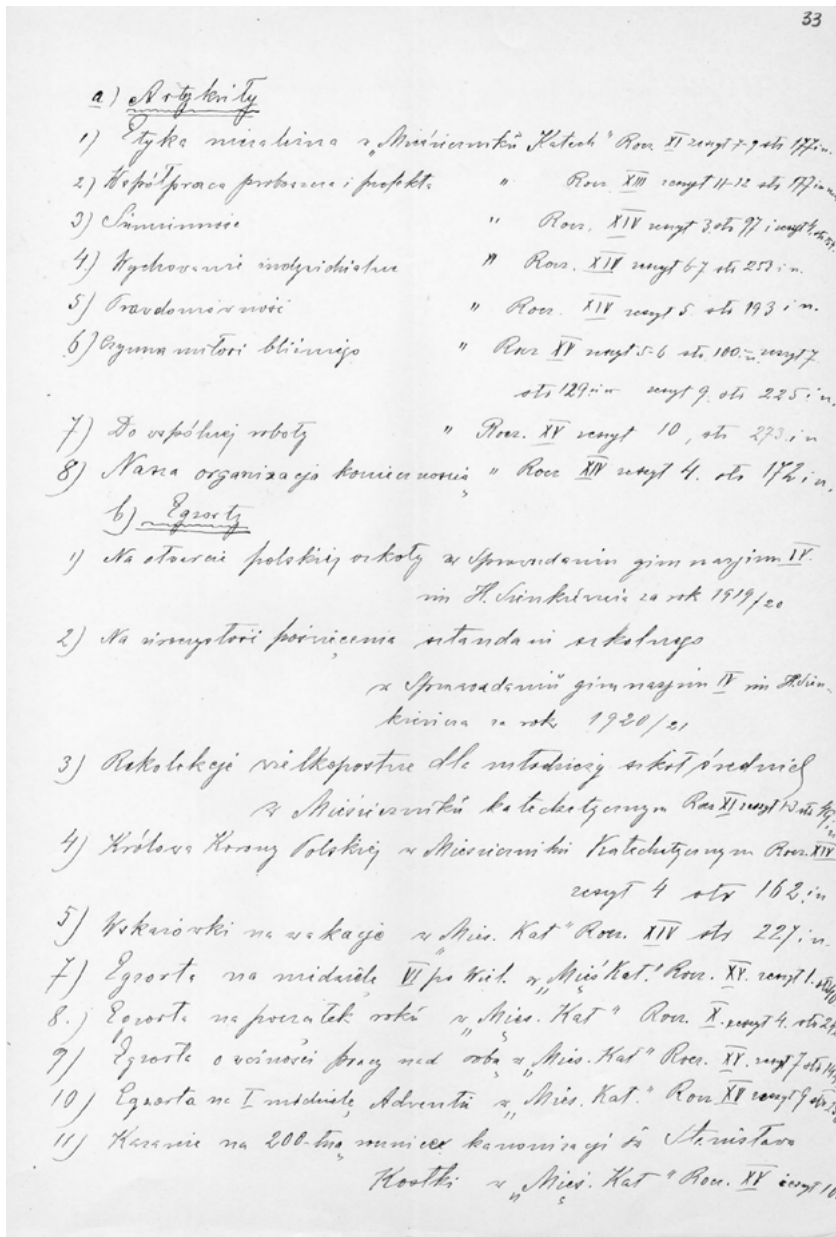 33
a) Artykuły
1) Etyka niezależna w „Miesięczniku Katech" Rocz. XI zeszyt 7-9 str 177 i n.
2) Współpraca proboszcza i prefekta " Rocz. XIII zeszyt 11-12 str 177 i n
3) Sumienność " Rocz. XIV zeszyt 3. str 97 i zeszyt
4) Wychowanie indywidualne " Rocz. XIV zeszyt 6-7 str 253 i n.
5) Prawdomówność " Rocz. XIV zeszyt 5. str 193 i n.
6) Czynna miłość bliźniego " Rocz XV zeszyt 5-6 str. 100 i n zeszyt 7
str 129 i n zeszyt 9. str 225 i n.
7) Do wspólnej roboty " Rocz. XV zeszyt 10, str 273 i n
8) Nasza organizacja koniecznością " Rocz XIV zeszyt 4. str 172 i n.
b) Egzorty
1) Na otwarcie polskiej szkoły w Sprawozdaniu gimnazjum IV.
im H. Sienkiewicza za rok 1919/20
2) Na uroczystość poświęcenia sztandaru szkolnego
w Sprawozdaniu gimnazjum IV im H. Sien-
kiewicza za rok 1920/21
3) Rekolekcje wielkopostne dla młodzieży szkół średnich
w Miesięczniku katechetycznym Rocz XI zeszyt 1-3 str
4) Królowa Korony Polskiej w Miesięczniku Katechetycznym Rocz. XIV
zeszyt 4 str 162 i n
5) Wskazówki na wakacje w „Mies. Kat" Rocz. XIV str 227 i n.
7) Egzorta na niedzielę VI po Wiel. w „Mies Kat." Rocz. XV. zeszyt 1.
8.) Egzorta na początek roku w „Mies. Kat" Rocz. X. zeszyt 4. str
9) Egzorta o ważności pracy nad sobą w „Mies. Kat" Rocz. XV. zeszyt 7 str
10) Egzorta na I niedzielę Adwentu w „Mies. Kat." Rocz XV zeszyt 9
11) Kazanie na 200-tną rocznicę kanonizacji św Stanisława
Kostki w „Mies. Kat" Rocz. XV zeszyt 10